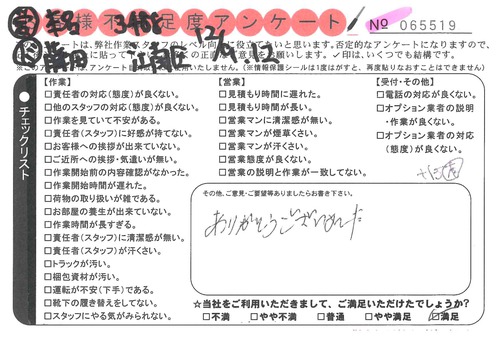 お客様不満足度アンケート
№ 065519
3月
12/9.12
アンケートは、弊社作業スタッフのレベル向上に役立てたいと思います。否定的なアンケートになりますので、
に貼って の正直なご意見をお願いします。✓印は、いくつでも結構です。
いたしません。(※情報保護シールは1度はがすと、再度貼りなおすことはできません)
チェックリスト
【作業】
□責任者の対応(態度)が良くない。
□他のスタッフの対応(態度)が良くない。
□作業を見ていて不安がある。
□責任者(スタッフ)に好感が持てない。
□お客様への挨拶が出来ていない。
□ご近所への挨拶・気遣いが無い。
□作業開始前の内容確認がなかった。
□作業開始時間が遅れた。
□荷物の取り扱いが雑である。
□お部屋の養生が出来ていない。
□作業時間が長すぎる。
□責任者(スタッフ)に清潔感が無い。
□責任者(スタッフ)が汗くさい。
□トラックが汚い。
□梱包資材が汚い。
□運転が不安(下手)である。
□靴下の履き替えをしてない。
□スタッフにやる気がみられない。
【営業】
□見積もり時間に遅れた。
□見積もり時間が長い。
□営業マンに清潔感が無い。
□営業マンが煙草くさい。
□営業マンが汗くさい。
□営業態度が良くない。
□営業の説明と作業が一致してない。
【受付・その他】
□電話の対応が良くない。
□オプション業者の説明
・作業が良くない。
□オプション業者の対応
(態度)が良くない。
その他、ご意見・ご要望等ありましたらお書き下さい。
ありがとうございました
☆当社をご利用いただきまして、ご満足いただけたでしょうか?
□不満 □やや不満 □普通 □やや満足 □満足